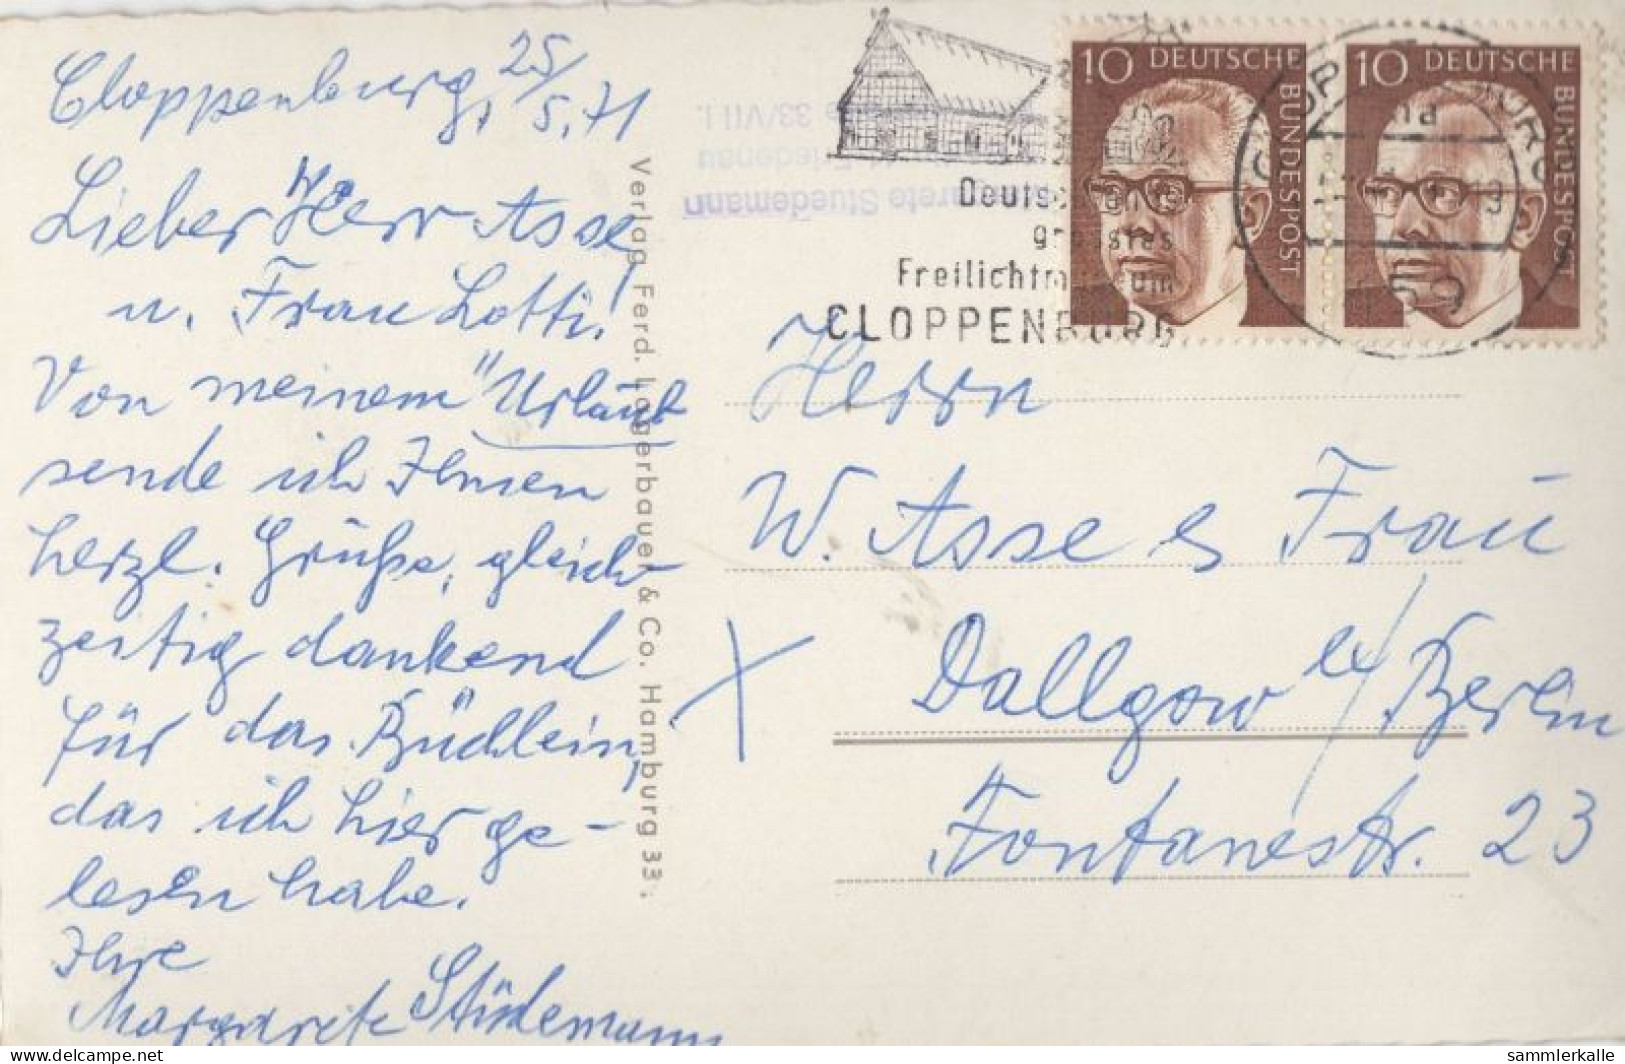 Cloppenburg, 25/5.71
Lieber Herr Asse
u. Frau Lotti!
Von meinem "Urlaub
sende ich Ihnen
herzl. Grüße, gleich-
zeitig dankend
für das Büchlein,
das ich hier ge-
lesen habe.
Ihre
Margarete Stüdemann
Verlag Ferd. Lagerbauer & Co. Hamburg 33.
Stuedemann
Friedenau
33/VII I.
Deutschlands
grösstes
Freilichtmuseum
CLOPPENBURG
10 DEUTSCHE BUNDESPOST
10 DEUTSCHE BUNDESPOST
459
Herrn
W. Asse & Frau
Dallgow b/ Berlin
Fontanestr. 23
delcampe.net
sammlerkalle